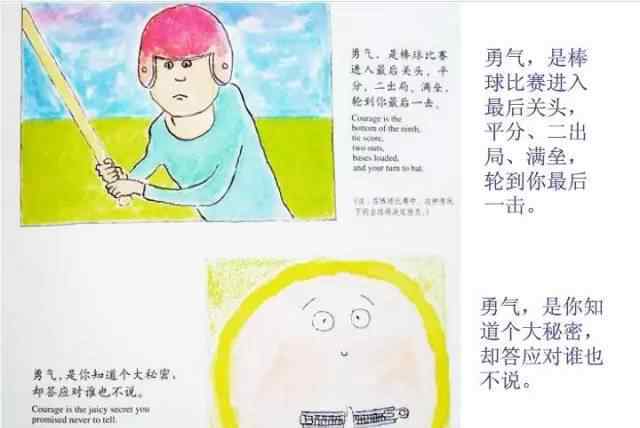 勇气，是棒球比赛
进入最后关头，平
分、二出局、满垒，
轮到你最后一击。
Courage is the
bottom of the ninth,
tie score,
two outs,
bases loaded,
and your turn to bat.
勇气，是棒
球比赛进入
最后关头，
平分、二出
局、满垒，
轮到你最后
一击。
勇气，是你知道个大秘密，
却答应对谁也不说。
Courage is the juicy secret you
promised never to tell.
勇气，是你知
道个大秘密，
却答应对谁也
不说。